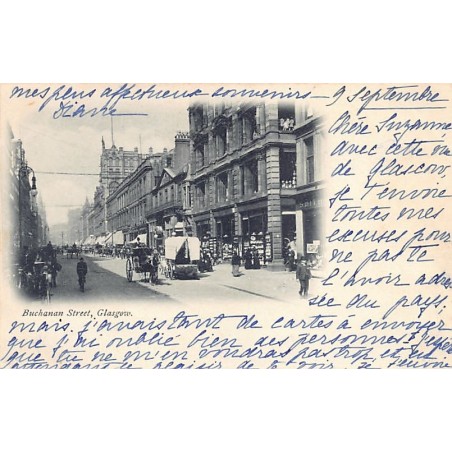 9 Septembre
Chère Suzanne
Avec cette vue
de Glascow,
je t'envoie
toutes mes
excuses pour
ne pas te
l'avoir adres
sée du pays,
mais j'avais tant de cartes à envoyer
que j'ai oublié bien des personnes. J'espère
que tu ne m'en voudras pas trop, et en
attendant le plaisir de te voir, je t'envoie
mes plus affectueux souvenirs
Diane
Buchanan Street, Glasgow.